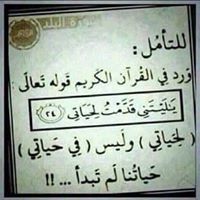 للتأمُل :
وَرد في القرآن الكَريم قوله تعالى :
يَٰلَيْتَنِي قَدَّمْتُ لِحَيَاتِي ﴿٢٤﴾
( لِحَياتي ) وليس ( في حَياتي )
حَياتُنا لَم تَبدأ ... !!